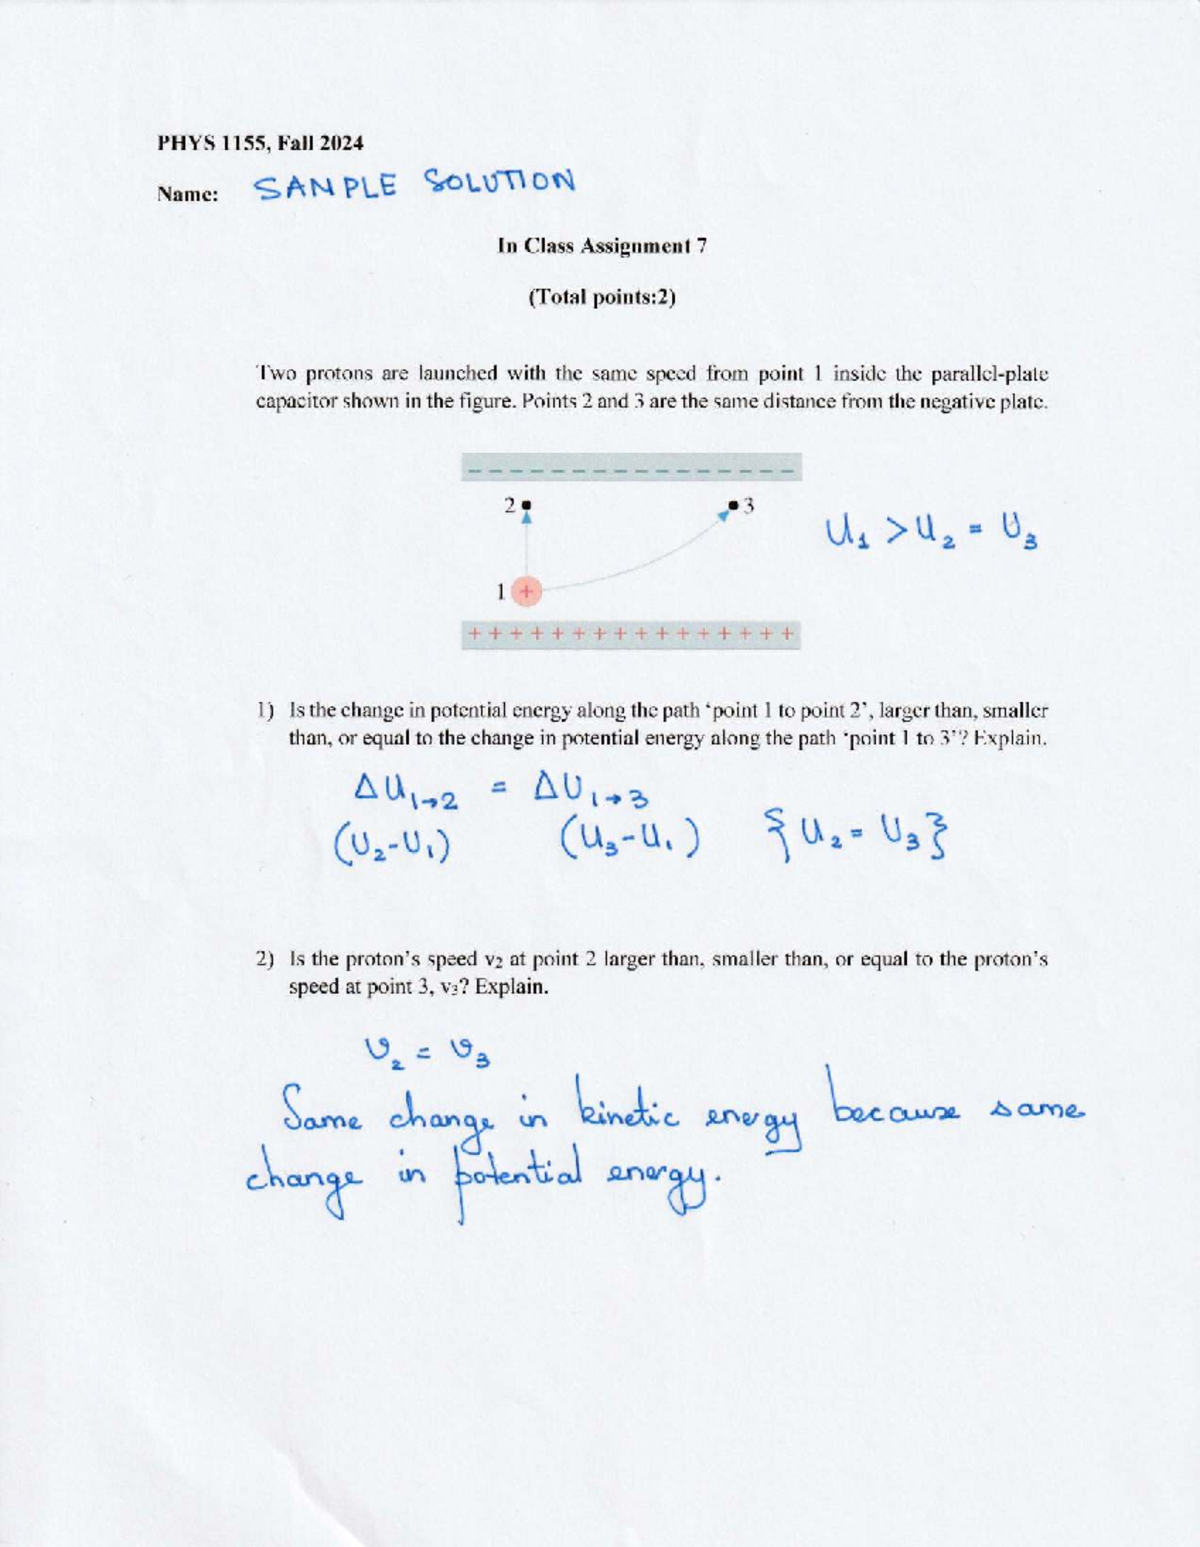 PHYS 1155, Fall 2024
Name: SAMPLE SOLUTION
In Class Assignment 7
(Total points:2)
Two protons are launched with the same speed from point 1 inside the parallel-plate
capacitor shown in the figure. Points 2 and 3 are the same distance from the negative plate.
− − − − − − − − − − − − − − − −
2 3
U₁ > U₂ = U₃
1 +
+ + + + + + + + + + + + + + + +
1) Is the change in potential energy along the path ‘point 1 to point 2’, larger than, smaller
than, or equal to the change in potential energy along the path ‘point 1 to 3’? Explain.
ΔU₁→₂ = ΔU₁→₃
(U₂-U₁) (U₃-U₁) {U₂ = U₃}
2) Is the proton’s speed v₂ at point 2 larger than, smaller than, or equal to the proton’s
speed at point 3, v₃? Explain.
v₂ = v₃
Same change in kinetic energy because same
change in potential energy.